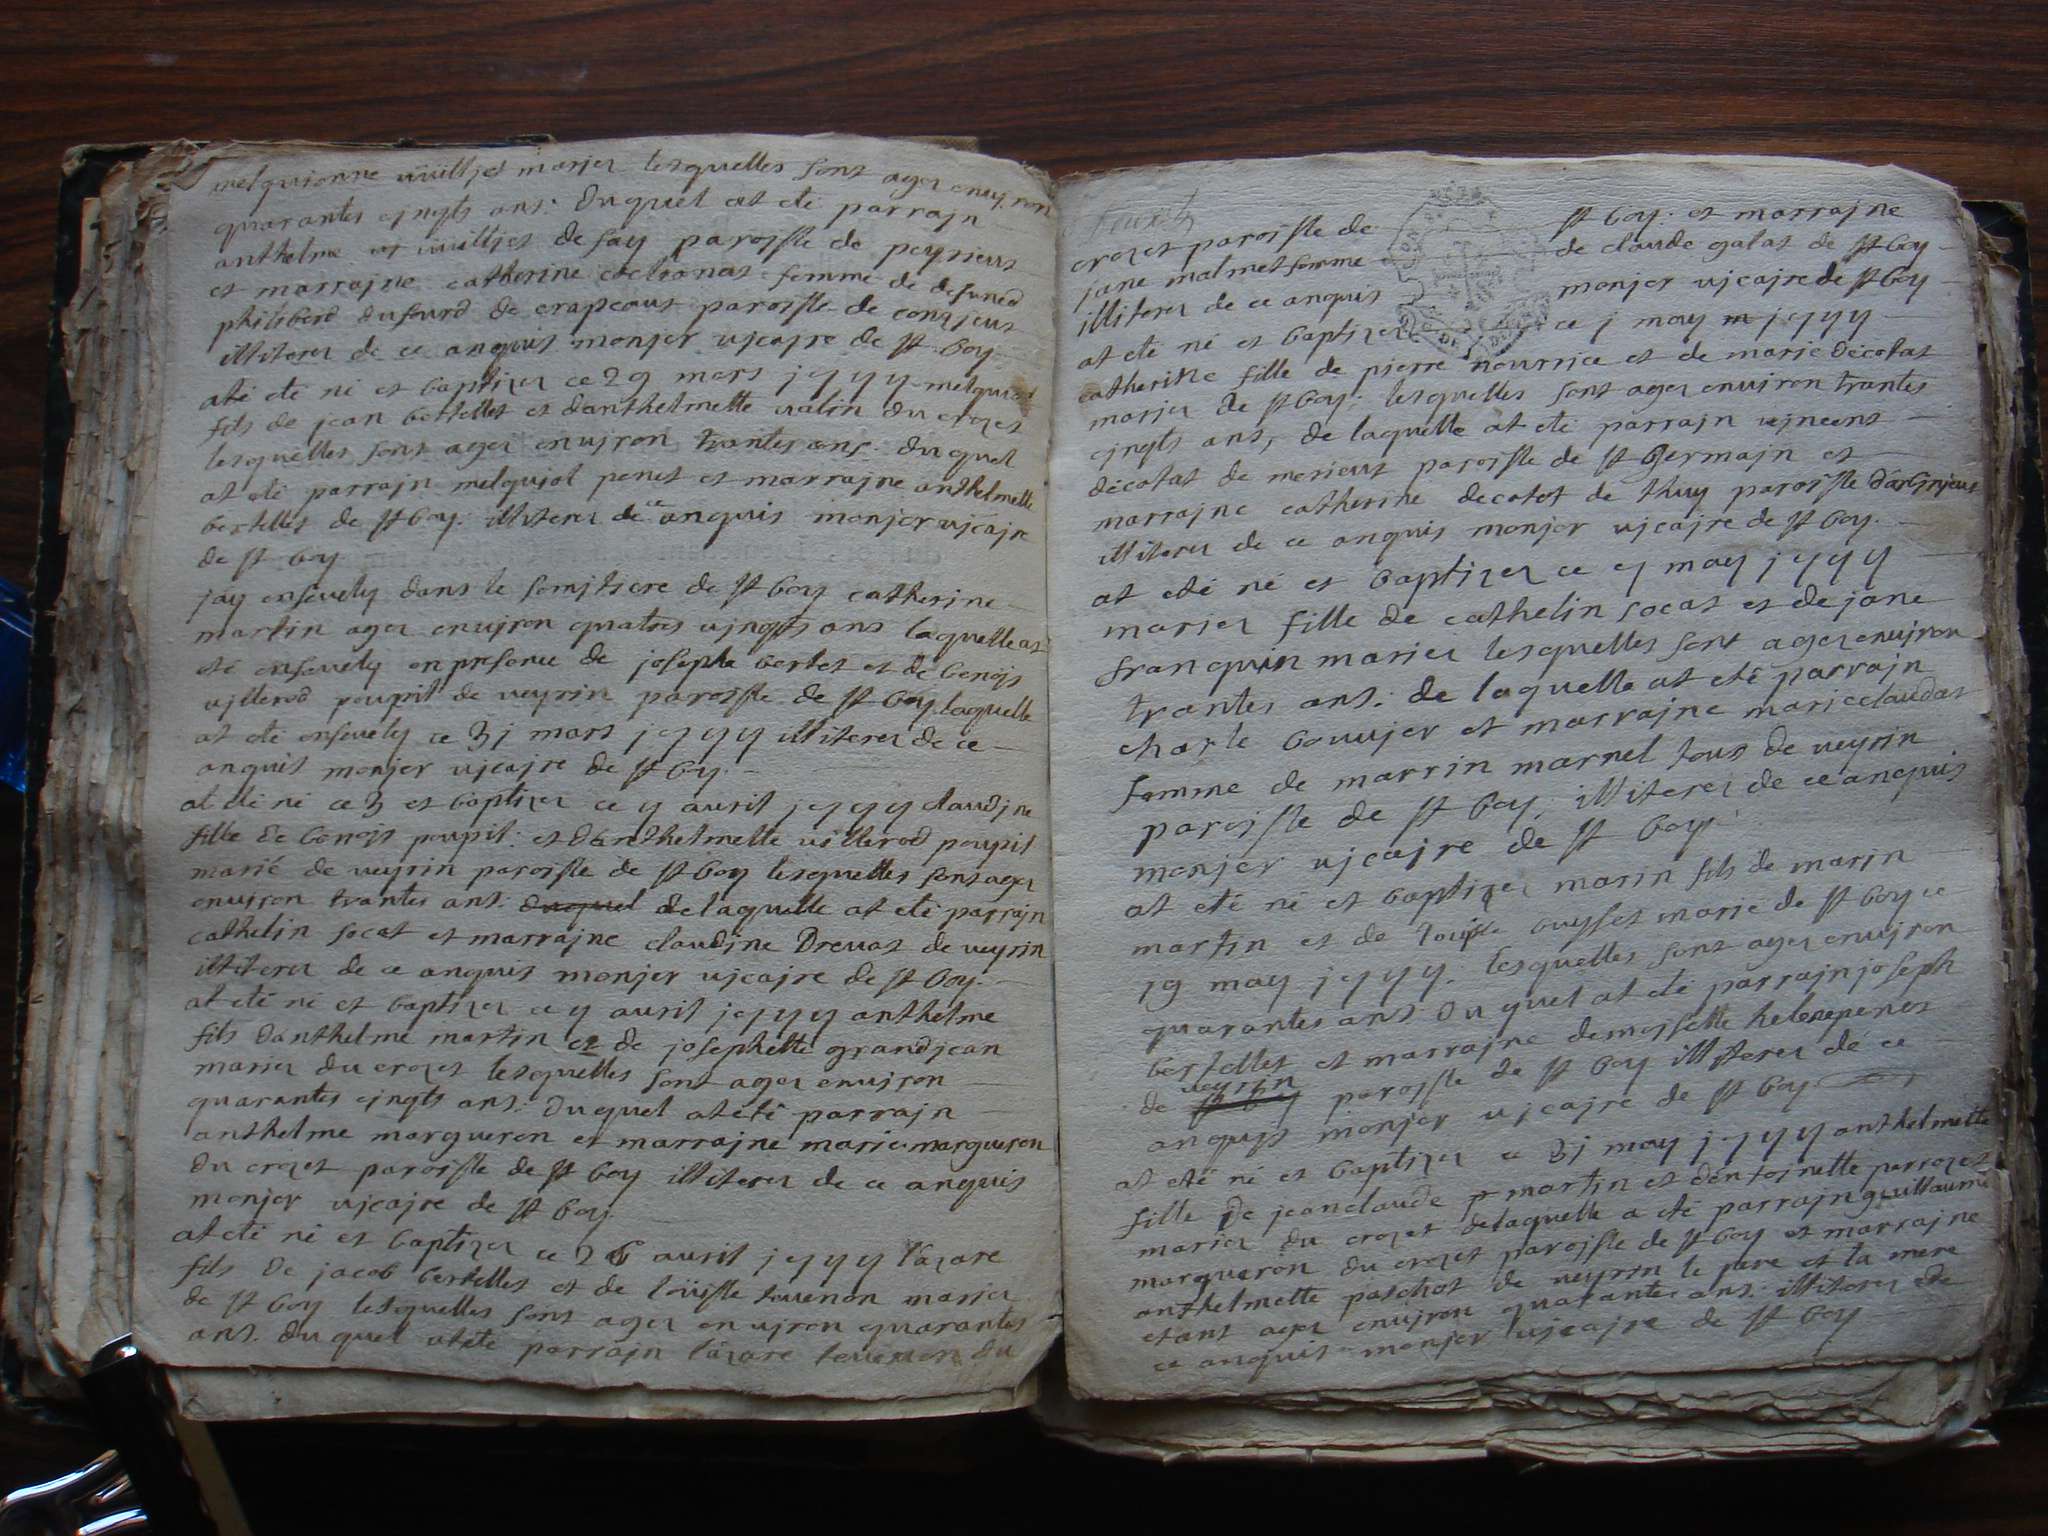 melquionne uuilljet marjer lesquelles sont ager enujron
quarantes cjngts ans. duquel at eté parrajn
anthelme uuilljet de fay paroisse de peyrieus
et marrajne catherine femme de defuned
philiberd dufourd de crapeous paroisse de conzjeus
illiterer de ce anquis monjer ujcajre de st boy
até eté né et baptizer ce 29 mars jyyy melquiot
fils de jean bertelles et danthelmette ualin du crozet
lesquelles sont ager enujron trantes ans. duquel
at eté parrajn melquiol penet et marrajne anthelmette
bertelles de st boy. illiterer de ce anquis monjer ujcajre
de st boy
jay enseuely dans le somjtiere de st boy catherine
martin ager enujron quatres ujngts ans laquelle at
eté enseuely en presence de joseph bertet et de benojs
ujllerod poupit de ueyrin paroisse de st boy laquelle
at eté enseuely ce 3j mars jyyy illiterer de ce
anquis monjer ujcajre de st boy.
at eté né ce 3 et baptizer ce y auril jyyy claudjne
fille de benojs poupit. et danthelmette uillerod poupit
marié de ueyrin paroisse de st boy lesquelles sont ager
enujron trantes ans. duquel de laquelle at eté parrajn
cathelin socat et marrajne claudine Dreuat de ueyrin
illiterer de ce anquis monjer ujcajre de st boy.
at eté né et baptizer ce y auril jyyy anthelme
fils danthelme martin et de josephette grandjean
marier du crozet lesquelles sont ager enujron
quarantes cjngts ans. duquel at eté parrajn
anthelme margueron et marrajne marie margueron
du crozet paroisse de st boy illiterer de ce anquis
monjer ujcajre de st boy.
at eté né et baptizer ce 26 auril jyyy lazare
fils de jacob bertelles et de louisse teuenon marier
de st boy lesquelles sont ager enujron quarantes
ans. duquel at eté parrajn lazare teuenon du
crozet paroisse de st boy. et marrajne
jane malmet femme de claude galat de st boy
illiterer de ce anquis monjer ujcajre de st boy
at eté né et baptizer ce j may jyyy
catherine fille de pierre nourrice et de marie décotat
marjer de st boy. lesquelles sont ager enuiron trantes
cjngts ans, de laquelle at eté parrajn ujncens
décotat de merieus paroisse de st germajn et
marrajne catherine decotet de thuy paroisse darbinjeus
illiterer de ce anquis monjer ujcajre de st boy.
at eté né et baptizer ce y may jyyy
marier fille de cathelin socat et de jane
franquin marier lesquelles sont ager enuiron
trantes ans. de laquelle at eté parrajn
charle bouujer et marrajne marie claudat
femme de marrin marnel tous de ueyrin
paroisse de st boy. illiterer de ce anquis
monjer ujcajre de st boy
at eté né et baptizer marin fils de marin
martin et de louisse buysset marié de st boy ce
19 may jyyy. lesquelles sont ager enujron
quarantes ans. duquel at eté parrajn joseph
bertelles et marrajne demoiselle helene penet
ueyrin
de st boy paroisse de st boy illiterer de ce
anquis monjer ujcajre de st boy
at eté né et baptizer ce 3j may jyyy anthelmette
fille de jeanclaude martin et dentojnette perrozet
marier du crozet delaquelle a eté parrajn guillaume
margueron du crozet paroisse de st boy et marrajne
anthelmette paschot de ueyrin le pere et la mere
etant ager enujron quarantes ans. illiterer de
ce anquis monjer ujcajre de st boy